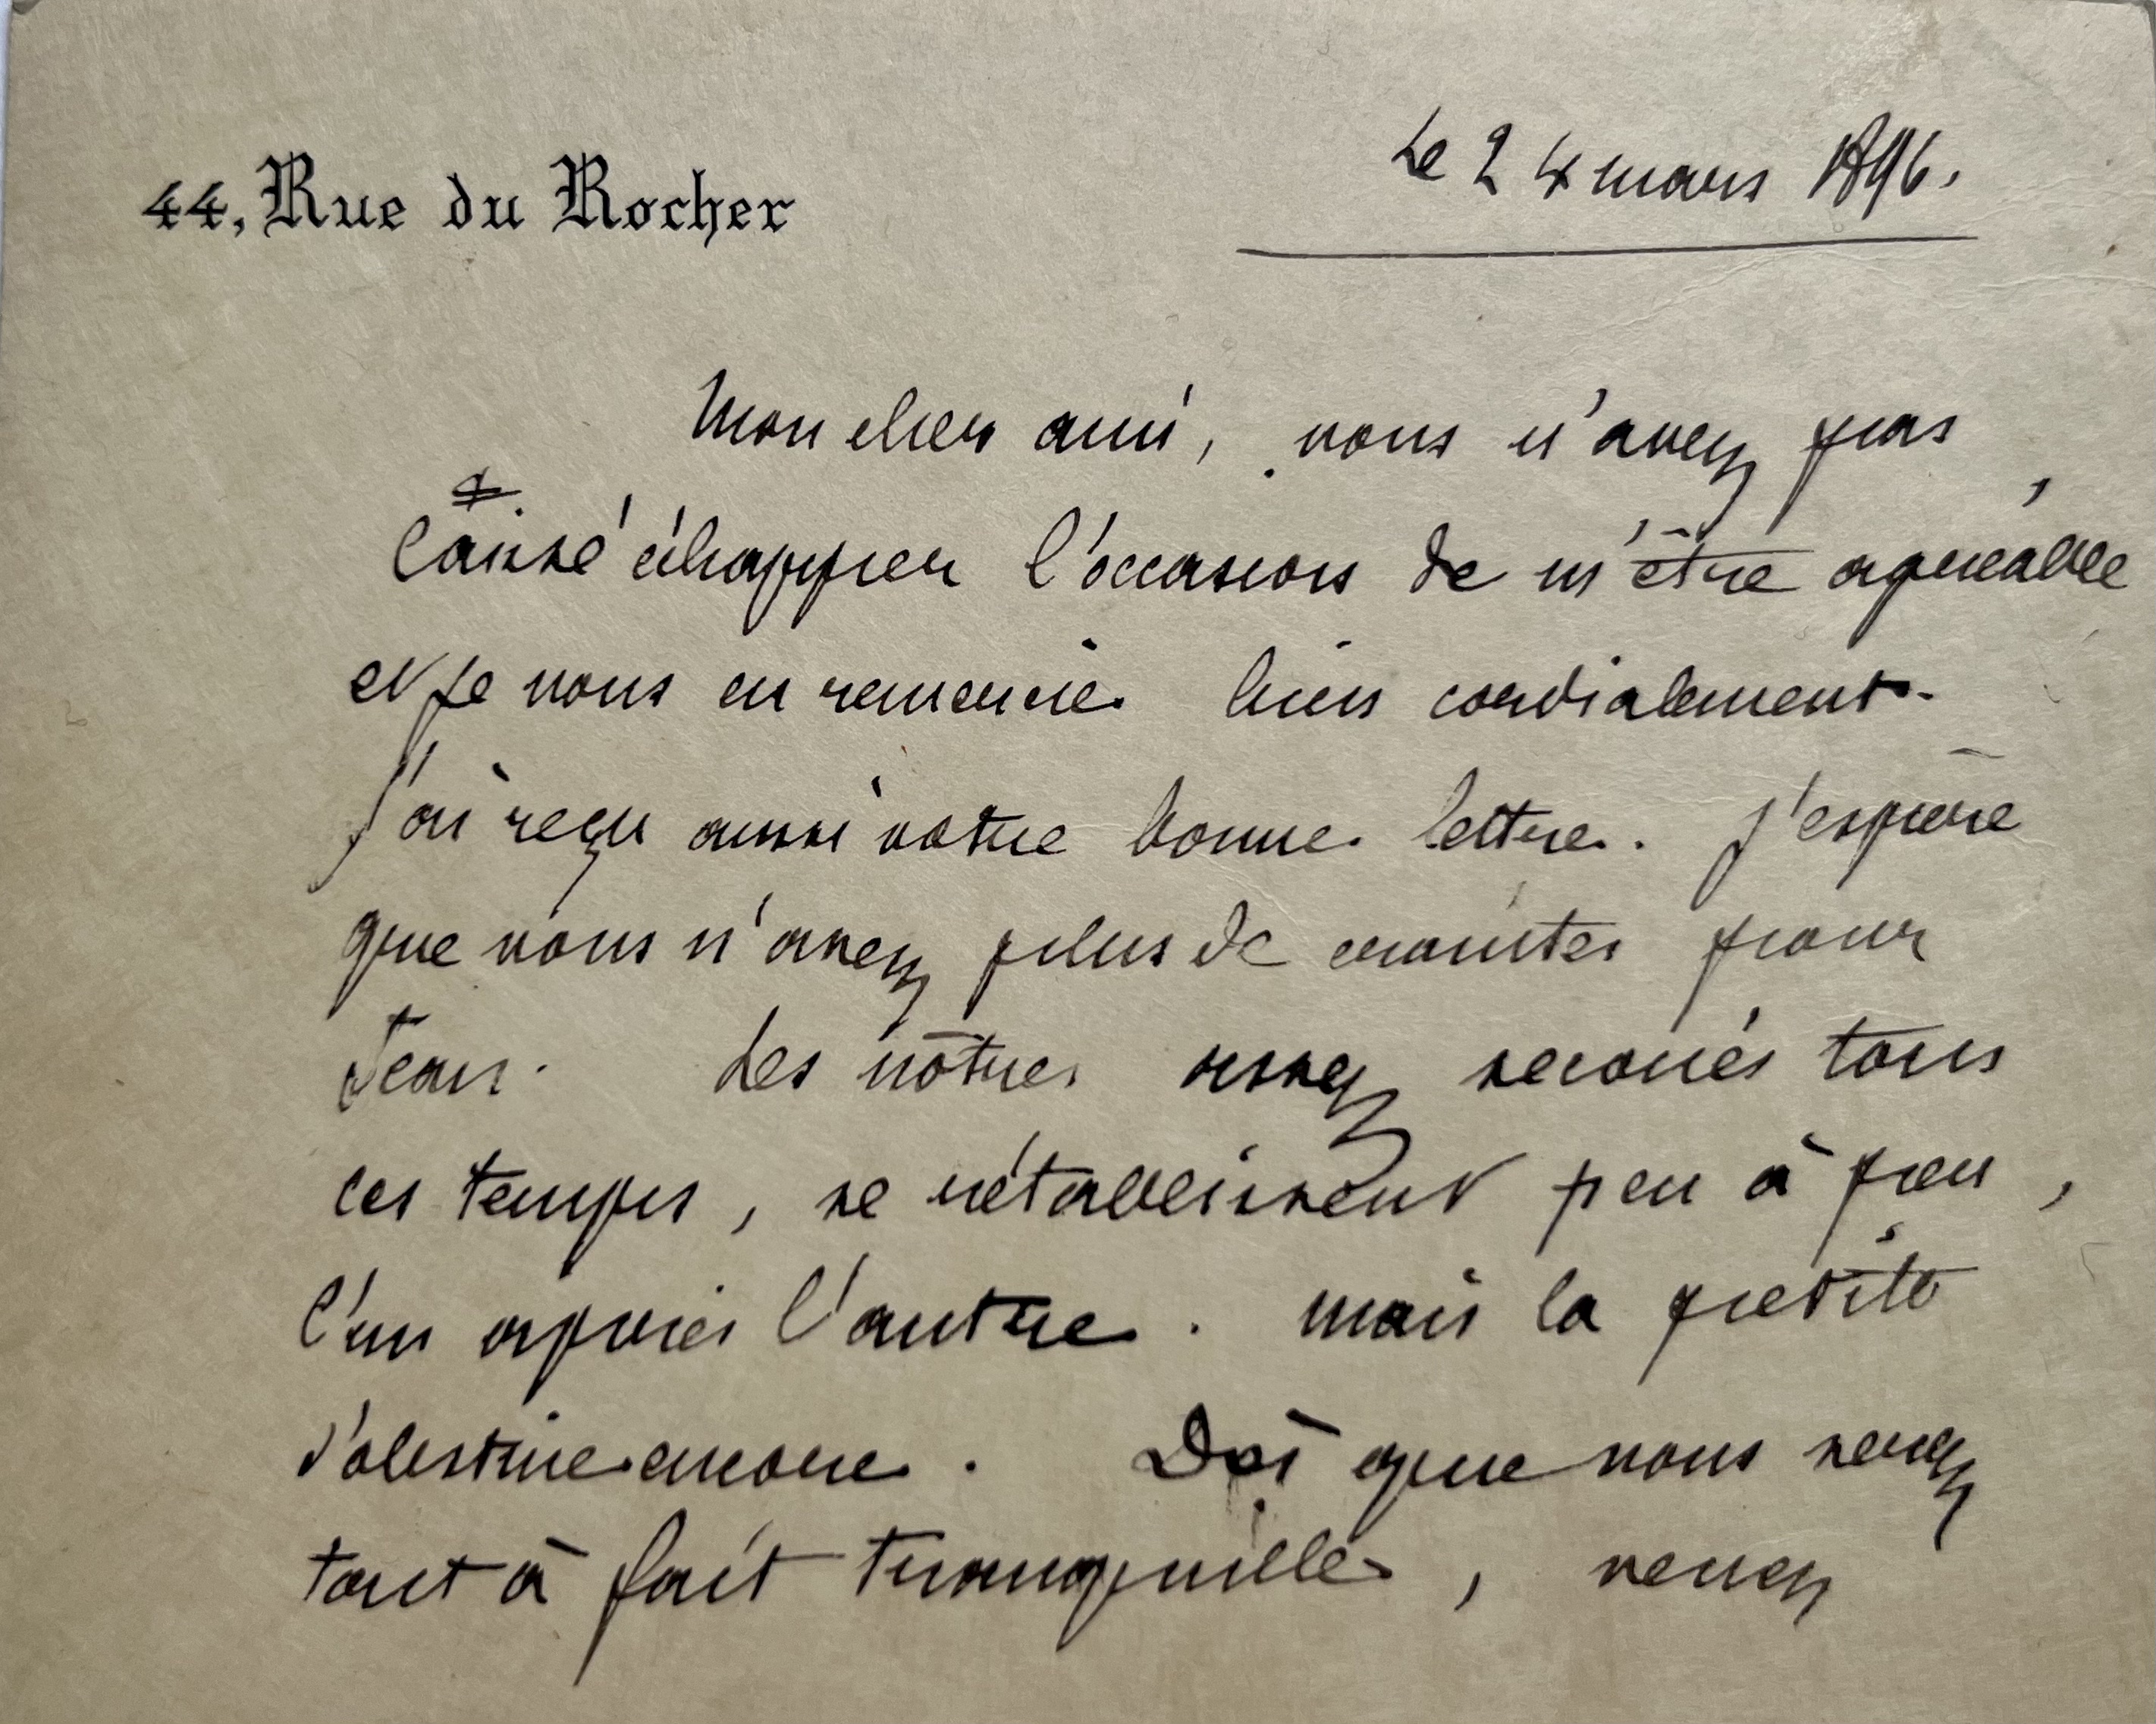 44, Rue du Rocher
Le 24 mars 1896.
Mon cher ami, vous n'avez pas
laissé échapper l'occasion de m'être agréable,
et je vous en remercie bien cordialement.
J'ai reçu aussi votre bonne lettre. J'espère
que vous n'avez plus de craintes pour
Jean. Les nôtres assez secoués tous
ces temps, se rétablissent peu à peu,
l'un après l'autre. mais la petite
s'obstine encore. Dès que vous serez
tout à fait tranquille, venez